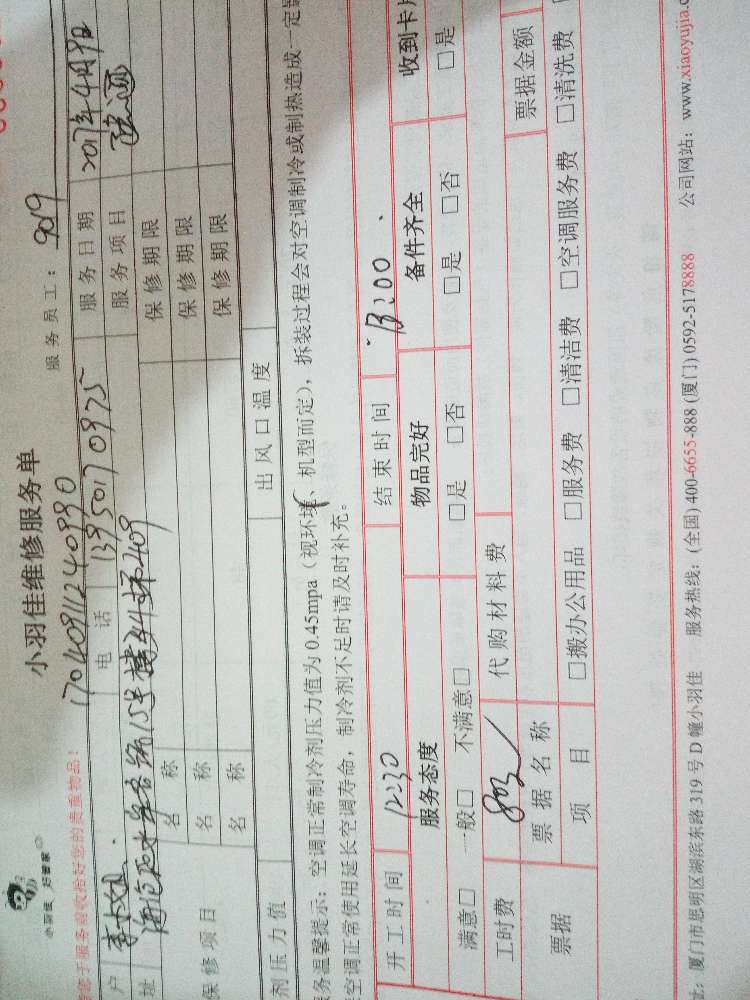 小羽佳 好管家
小羽佳维修服务单
17040911240990
服务员工: 9019
于服务前收拾好您的贵重物品!
户 李小姐 电话 13950170975 服务日期 2017年4月9日
址 15号楼 409 服务项目
保修项目 名称 保修期限
名称 保修期限
名称 保修期限
剂压力值 出风口温度
务温馨提示: 空调正常制冷剂压力值为 0.45mpa (视环境、机型而定), 拆装过程会对空调制冷或制热造成一定
空调正常使用延长空调寿命, 制冷剂不足时请及时补充。
开工时间 12:30 结束时间 13:00
服务态度 物品完好 备件齐全 收到卡
满意□ 一般□ 不满意□ □是 □否 □是 □否 □是
工时费 80元 代购材料费
票据 票据名称 票据金额
项目 □搬办公用品 □服务费 □清洁费 □空调服务费 □清洗费
址: 厦门市思明区湖滨东路 319 号 D 幢小羽佳 服务热线: (全国) 400-6655-888 (厦门) 0592-5178888 公司网站: www.xiaoyujia.c